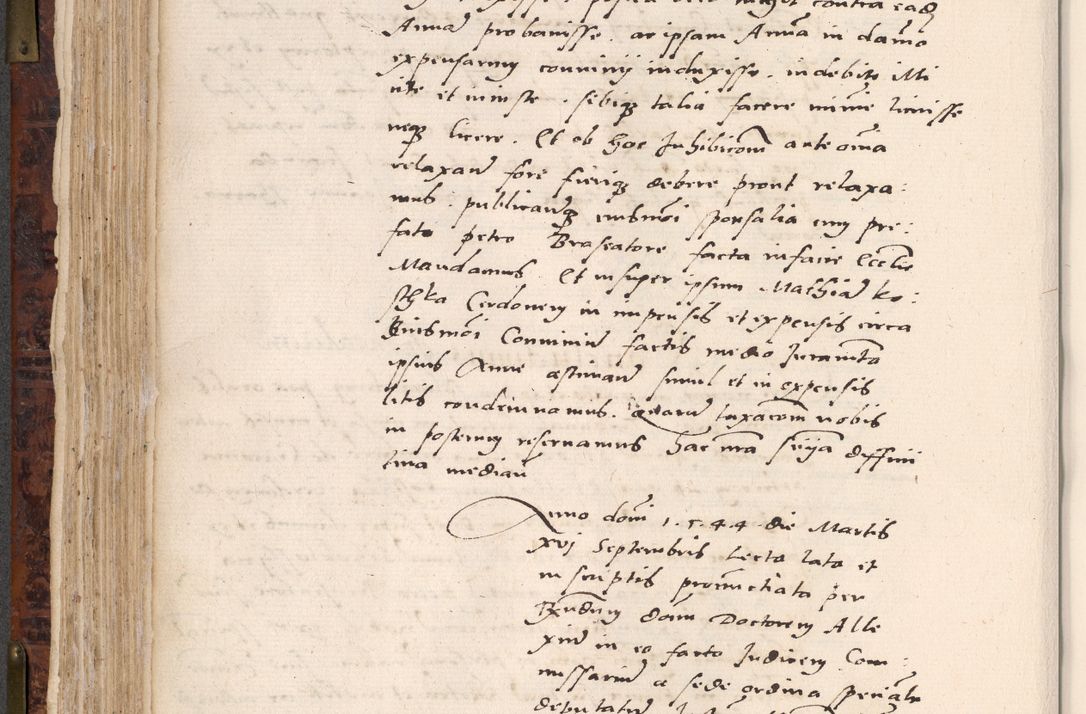 contra ead
Annā probavisse. ac ipsam Annā in damō
expensarum convinij induxisse. indebite illi
cite et iniuste. sibiq talia facere minime licuisse
neq licere. Et ob hoc Inhibicōm ante oīa
relaxand fore fieriq debere prout relaxa:
mus. publicandq eiusmōi sponsalia cum pre:
fato petro Braseatore facta in facie Eccliē
Mandamus. Et insuper ipsum Mathiā ko:
sthka Cerdonem in impensis et expensis circa
Huiusmōi Convinium factis medio Iuramēto
ipsius Anne estimand simul et in expensis
litis condemnamus. quarū taxacōm nobis
in posterum reservamus hac nrā snīa diffini
tiva median̄
Anno domī 1.5.44 die Martis
xvj Septembris Lecta lata et
in scriptis pronunctiata per
Rxndum Dom Doctorem Alle
xiū in eo facto Iudicem Com:
missariū a sede ordina specialr
deputatū